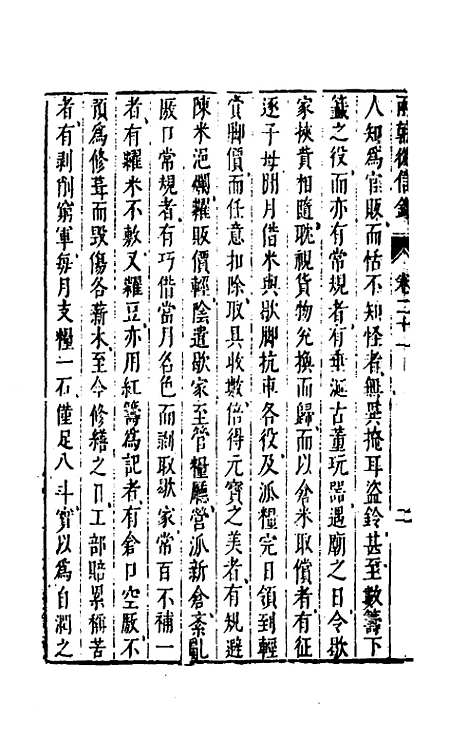 兩朝從信錄 卷二十一 二
人知爲官販而恬不知怪者無異掩耳盜鈴甚至數籌下
籤之役而亦有常規者有垂涎古董玩器遇廟之日令歇
家挾貲相隨覘視貨物兌換而歸而以倉米取償者有征
逐子母開月借米與歇脚抗車各役及派糧完日領到輕
賫脚價而任意扣除取具收數倍得元寶之美者有規避
陳米浥爛糴販價輕陰遣歇家至管糧廳營派新倉紊亂
廒口常規者有巧借當月名色而剥取歇家常百不補一
者有糴米不敷又糴豆亦用紅籌爲記者有倉口空廒不
預爲修葺而毀傷各薪木至今修繕之日工部賠累稱苦
者有剥削窮軍每月支糧一石僅足八斗實以爲自潤之